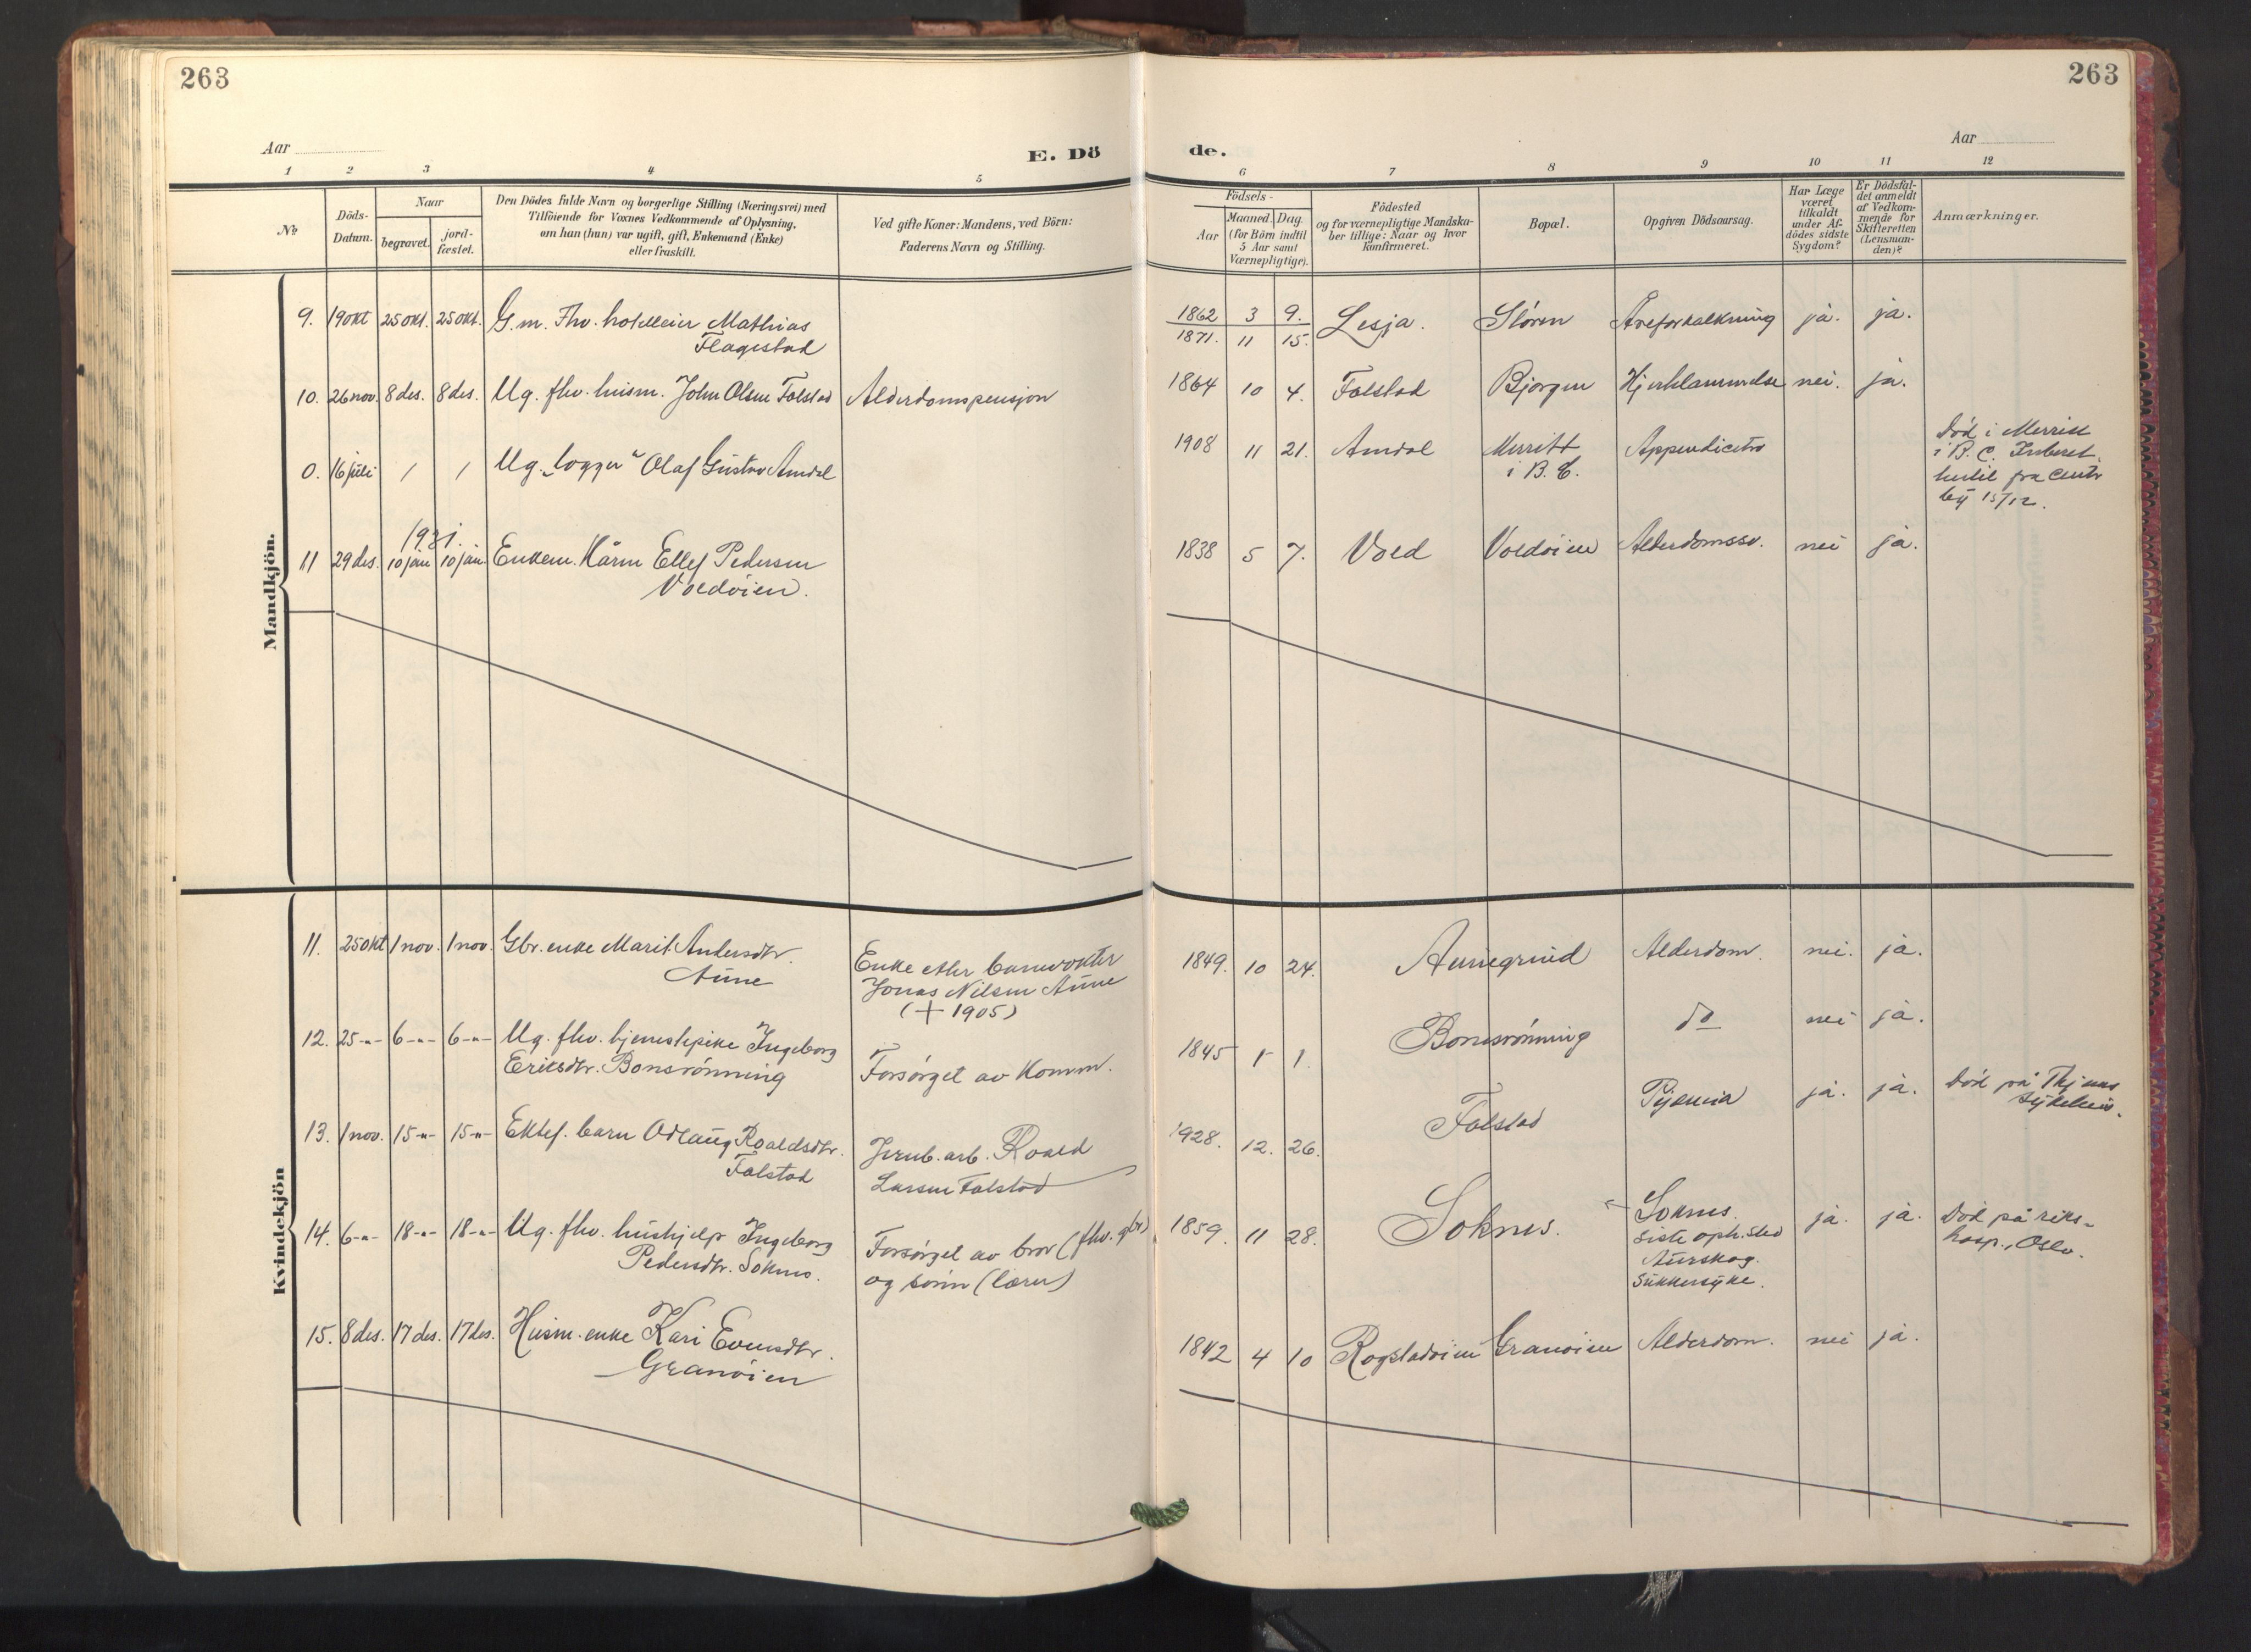 263
263
Aar
E. Dö
de.
Aar
1 2 3 4 5 6 7 8 9 10 11 12
No
Döds-
Datum.
Naar
begravet.
jord-
fæstet.
Den Dödes fulde Navn og borgerlige Stilling (Næringsvei) med
Tilföiende for Voxnes Vedkommende af Oplysning,
om han (hun) var ugift, gift, Enkemand (Enke)
eller fraskilt.
Ved gifte Koner: Mandens, ved Börn:
Faderens Navn og Stilling.
Födsels-
Aar
Maaned.
Dag.
(for Börn indtil
5 Aar samt
Værnepligtige).
Födested
og for værnepligtige Mandska-
ber tillige: Naar og hvor
konfirmeret.
Bopæl.
Opgiven Dödsaarsag.
Har Læge
været
tilkaldt
under Af-
dödes sidste
Sygdom?
Er Dödsfal-
det anmeldt
af Vedkom-
mende for
Skifteretten
(Lensman-
den)?
Anmærkninger.
Mandkjön.
9. 19 okt 25 okt. 25 okt. G.m. Fhv. hotelleier Mathias
Flagestad
1862 3 9. Lesja. Støren Åreforkalkning ja. ja.
1871. 11 15.
10. 26 nov. 8 des. 8 des. Ug. fhv. husm. John Olsen Folstad Alderdomspensjon
1864 10 4. Folstad Bjørgen Hjerklammelse nei. ja.
0. 16 juli / / Ug. "logger" Olaf Gustav Amdal
1908 11 21. Amdal Merritt
i B. C.
død i Merritt
i B. C.
fra
15/12.
1931.
11 29 des. 10 jan 10 jan. Enkem. Kårm Ellef Pedersen
Voldøien.
1838 5 7. Vold Voldøien Alderdomssv. nei ja.
Kvindekjön
11. 25 okt 1 nov. 1 nov. Gbr. enke Marit Andersdtr.
Aune
Enke etter banevokter
Jonas Nilsen Aune
(+ 1905)
1849. 10 24. Aunegrind Alderdom. nei. ja.
12. 25 -"- 6 -"- 6 -"- Ug. fhv. tjenestepike Ingeborg
Eriksdtr. Bonsrønning
Forsørget av Komm.
1845 1 1. Bonsrønning do nei ja.
13. 1 nov. 15 -"- 15 -"- Ektef. barn Odlaug Roaldsdtr.
Folstad
Jernb. arb. Roald
Larsen Folstad
1928. 12. 26. Folstad Pyemia ja. ja. død på
sykehus.
14. 6 -"- 18 -"- 18 -"- Ug. fhv. hushjelp Ingeborg
Pedersdtr. Soknes.
Forsørget av bror (fhv. gbr)
og sønn (lærer)
1859. 11 28. Soknes. Soknes.
siste oph.sted
Aurskog.
Sukkersyke.
ja. ja. Død på riks-
hosp., Oslo.
15. 8 des. 17 des. 17 des. Husm. enke Kari Evensdtr.
Granøien
1842 4 10 Rogstadøien Granøien Alderdom. nei ja.